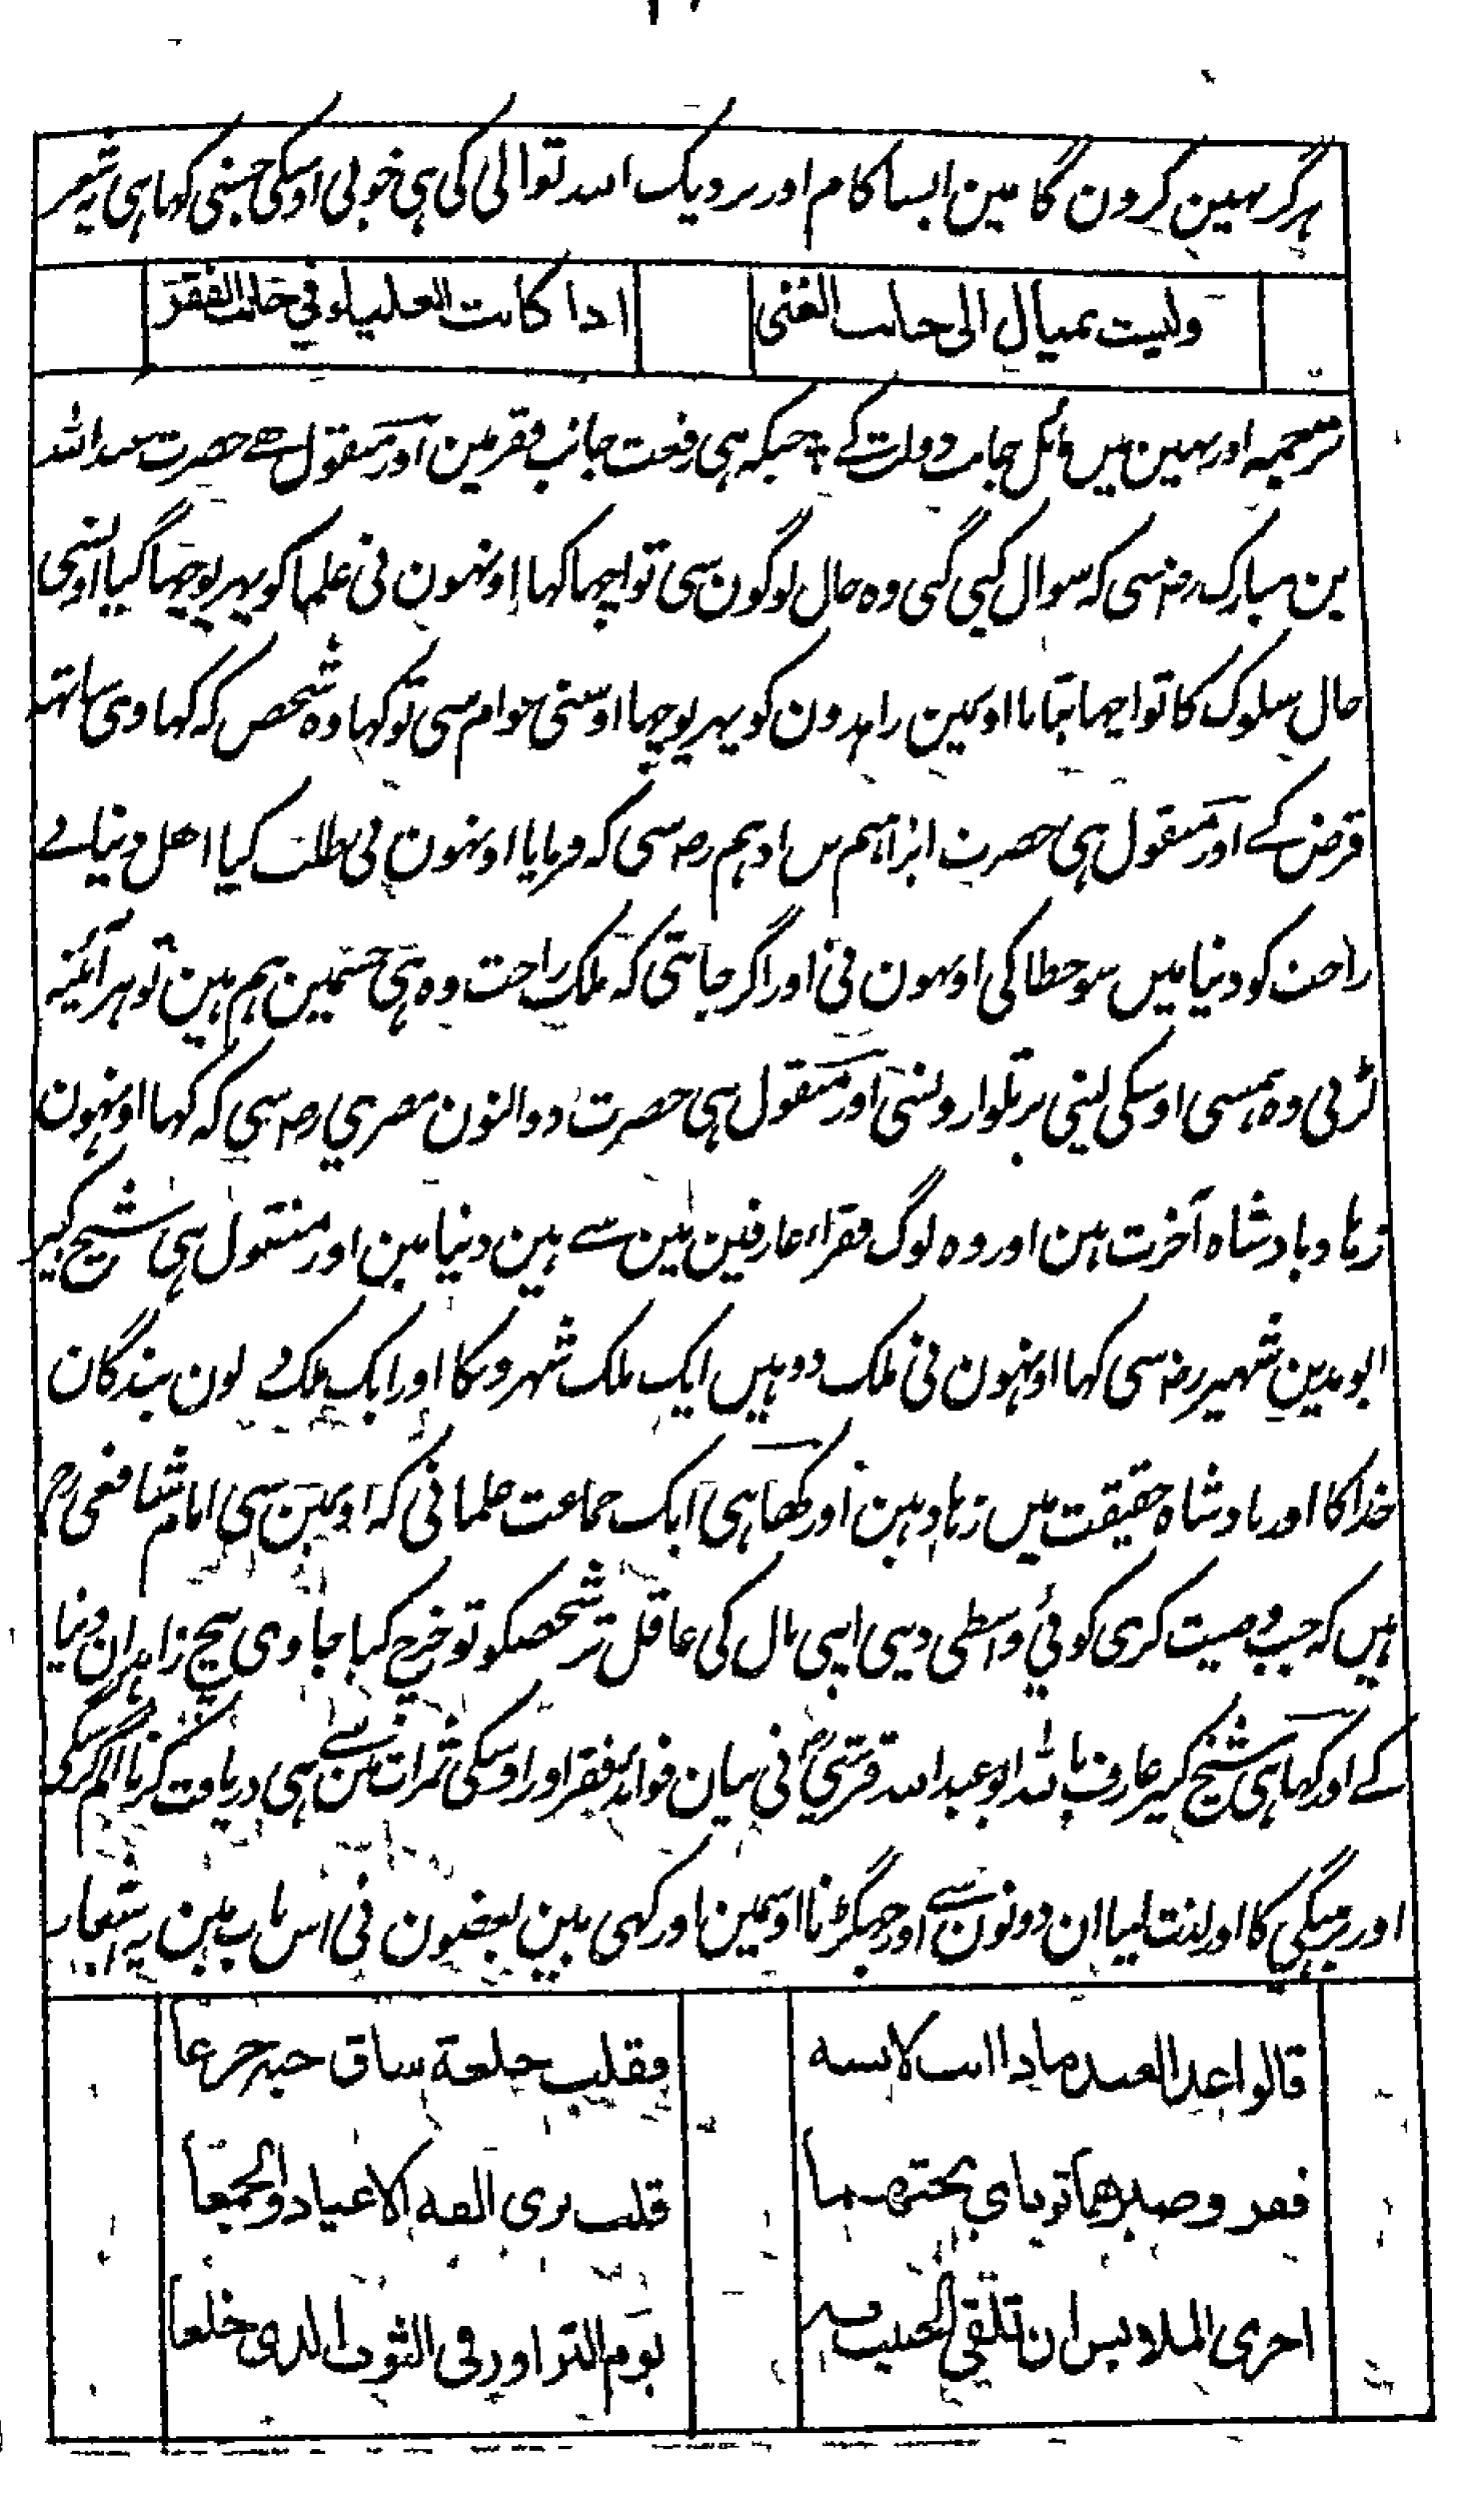 ہرگز نہین کرون گا مین ایسا کام اور نزدیک اللہ توالی کی ہی خوبی اوسکی جسنی کہا ہی یہ شعر
ولیست بمیال الی جانب الغنی
اذا کانت العلیاء فی جانب الفقر
ترجمہ اور نہین میں مائل جانب دولت کے جبکہ ہی رفعت جانب فقر مین اور منقول ہے حضرت عبد اللہ
بن مبارک رضہ سی کہ سوال کیی گئی وہ حال لوگون سی تو اچھا کہا اونہون نی علما کو پہر پوچھا گیا اونسی
حال سلوک کا تو اچھا بتایا اوسمین زاہدون کو پہر پوچھا اوسنی عوام سی تو کہا وہ شخص کہ کہاوی ساتہہ
قرض کے اور منقول ہی حضرت ابراہیم بن ادہم رضہ سی کہ فرمایا اونہون نی طلب کیا اہل دنیا نے
راحت کو دنیا میں سو خطا کی اونہون نی اور اگر جانتی کہ ملک راحت وہ ہی جسمین ہم ہین تو ہر آئینہ
لڑتی وہ ہمسی اوسکی لیٔی پر تلوارونسی اور منقول ہی حضرت ذوالنون مصری رضہ سی کہ کہا اونہون
زہاد بادشاہ آخرت ہین اور وہ لوگ فقراء عارفین مین سے ہین دنیا مین اور منقول ہی شیخ کبیر
ابو مدین شہیر رضہ سی کہا اونہون نی ملک دو ہیں ایک ملک شہرونکا اور ایک ملک بندگان
خدا کا اور بادشاہ حقیقت میں زہاد ہین اور کہا ہی ایک جماعت علما نی کہ اونمین سی امام شافعی رح
ہیں کہ جب وصیت کری کوئی واسطی دینی اپنی مال کی عاقل تر شخصکو تو خرچ کیا جاوی بیچ زاہدان دنیا
کے اور کہا ہی شیخ کبیر عارف باللہ ابو عبد اللہ قرشی نی بیان فواید فقر اور اوسکی ثمرات مین سے ہی دریافت کرنا الم گرسنگی
اور برہنگی کا اور لذت لینا ان دونون سے اور جہگڑنا اوسمین اور کہی ہین بعضون نی اس باب مین یہ اشعار
قالوا غدا العید ماذا انت لابسہ
فقلت خلعة ساق حبہ جرعا
فقر وصبر ھما ثوبای تحتھما
قلب یری الفہ الاعیاد والجمعا
احری الملابس ان تلقی الحبیب بہ
یوم التزاور فی الثوب الذی خلعا